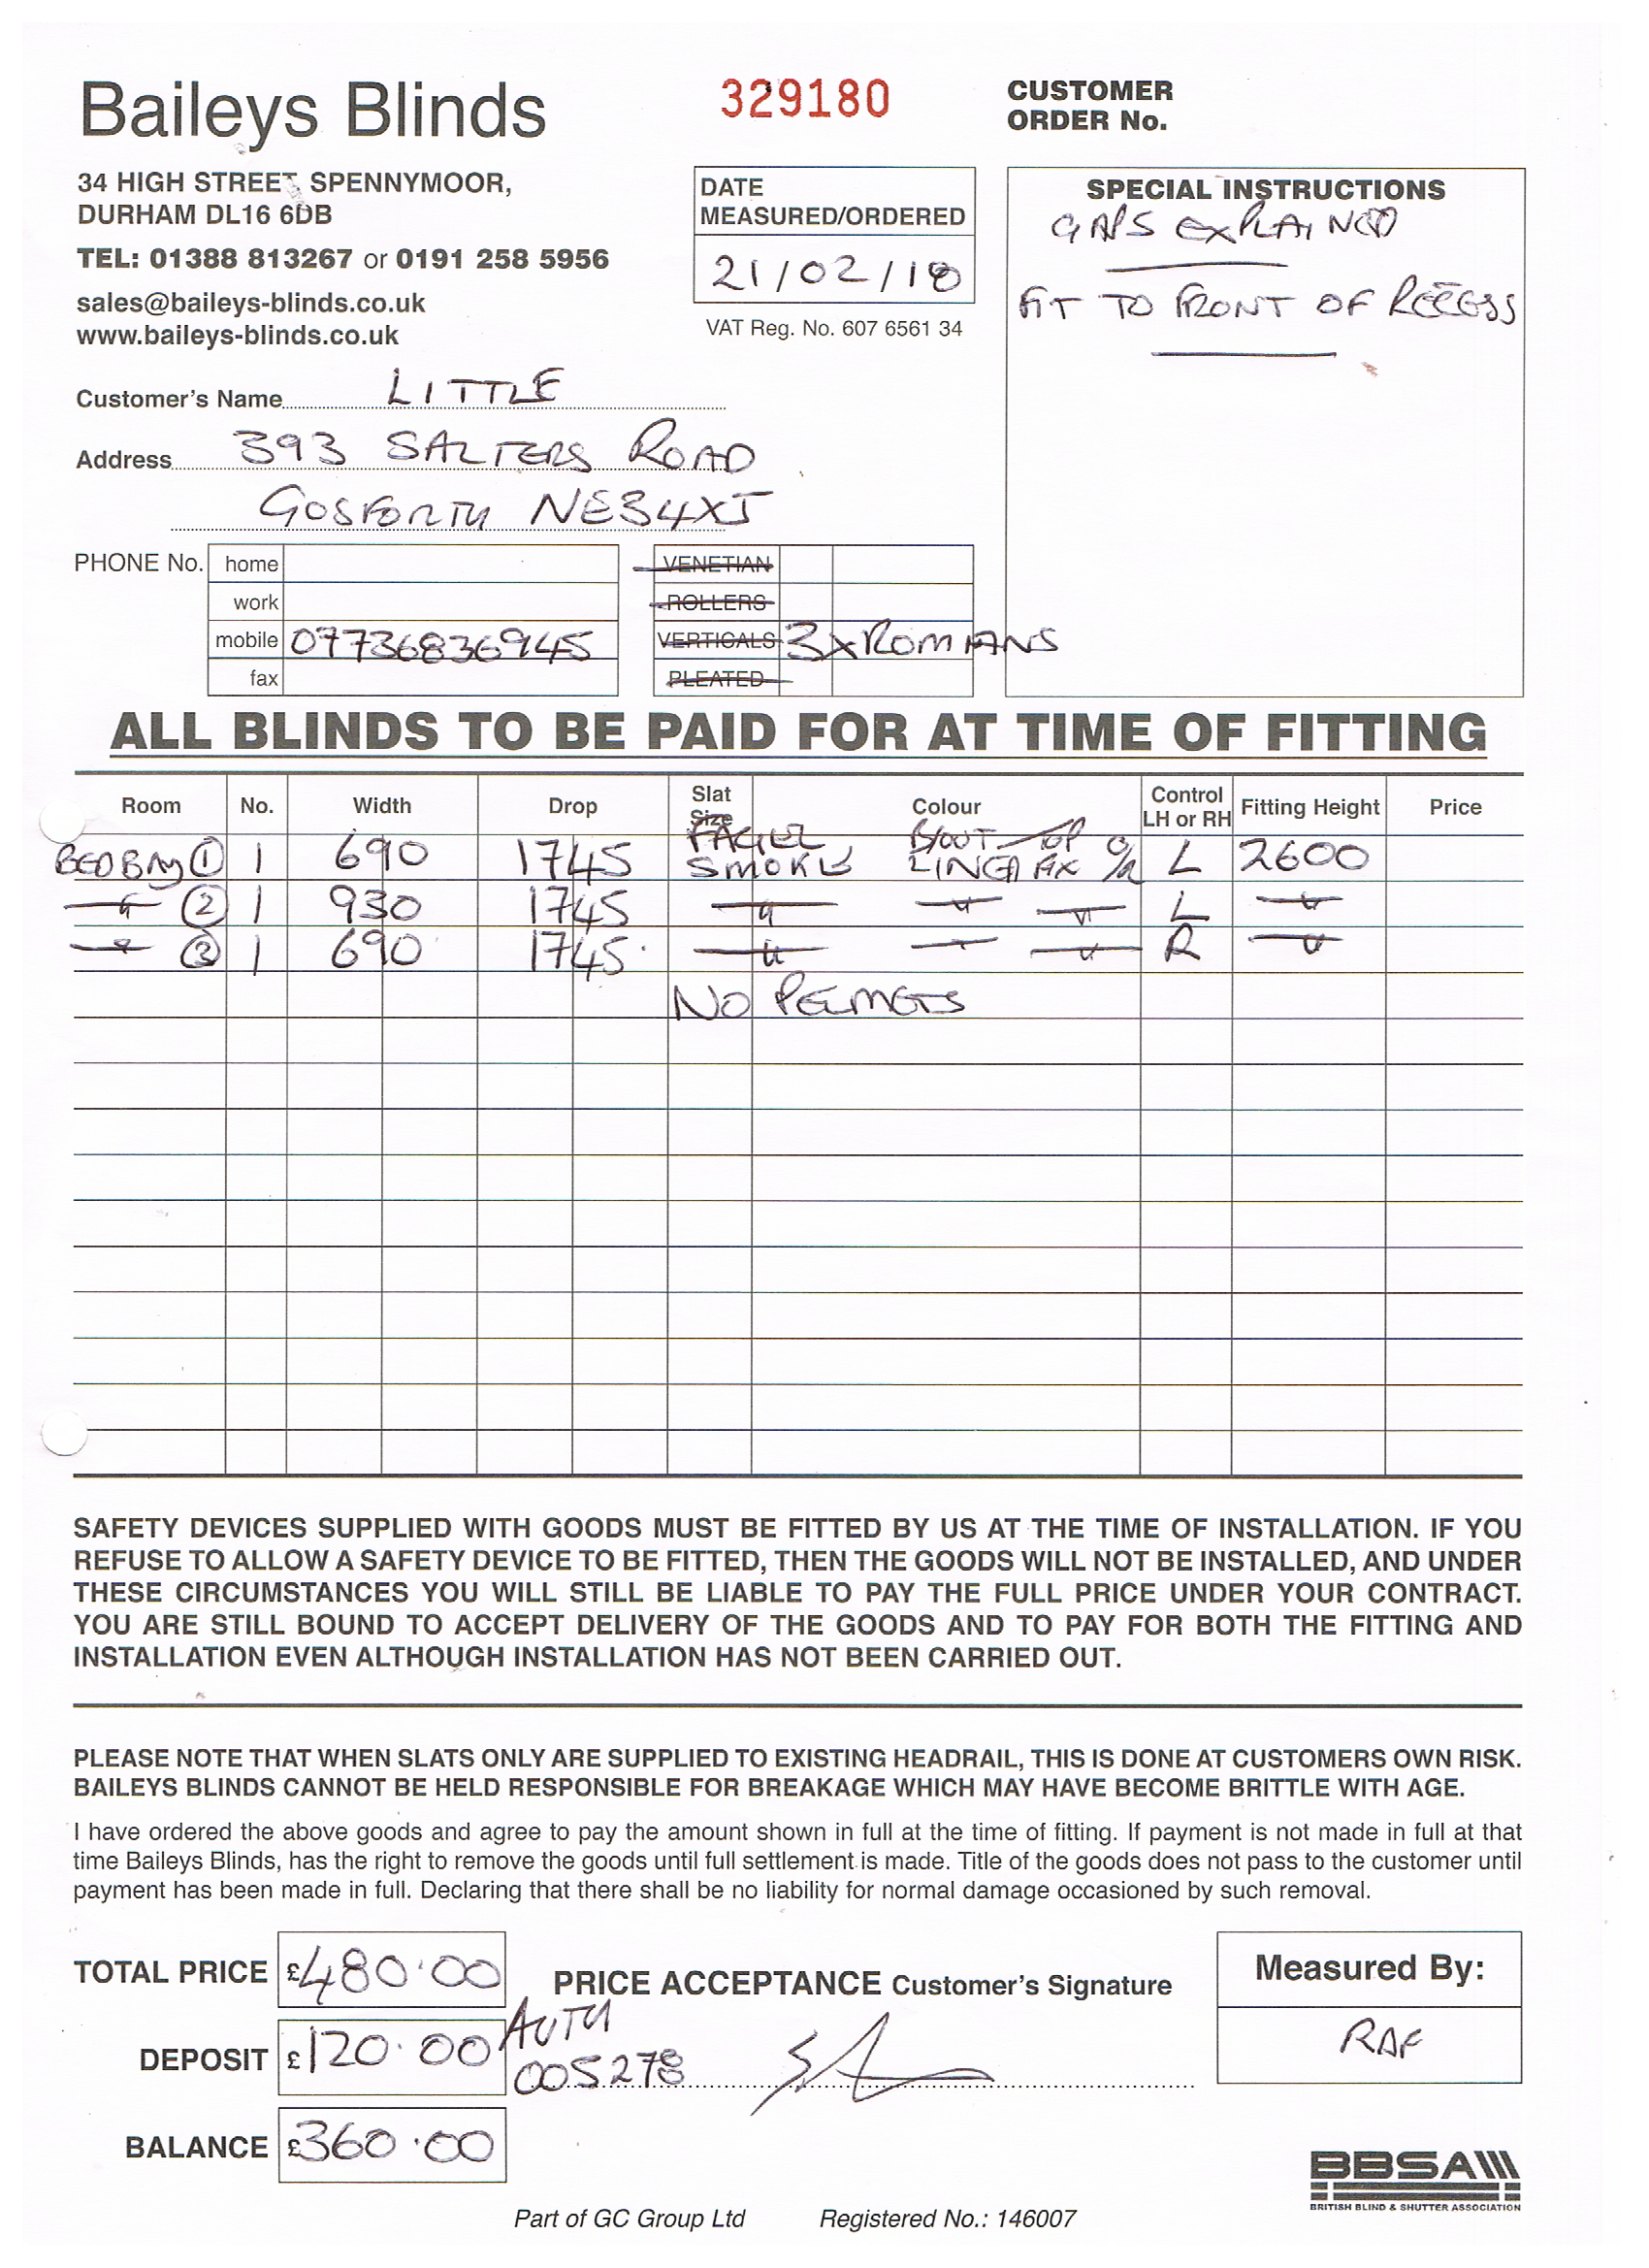 Baileys Blinds
329180
CUSTOMER
ORDER No.
34 HIGH STREET, SPENNYMOOR,
DURHAM DL16 6DB
TEL: 01388 813267 or 0191 258 5956
sales@baileys-blinds.co.uk
www.baileys-blinds.co.uk
DATE
MEASURED/ORDERED
21/02/18
VAT Reg. No. 607 6561 34
SPECIAL INSTRUCTIONS
GAPS EXPLAINED
FIT TO FRONT OF RECESS
Customer's Name LITTLE
Address 393 SALTERS ROAD
GOSFORTH NE34XJ
PHONE No. home
work
mobile 07736836945
fax
VENETIAN
ROLLERS
VERTICALS 3xROMANS
PLEATED
ALL BLINDS TO BE PAID FOR AT TIME OF FITTING
Room No. Width Drop Slat Size Colour Control LH or RH Fitting Height Price
BED BAY 1 1 690 1745 SMOKE B/OUT TOP L 2600
" 2 1 930 1745 " " " L "
" 3 1 690 1745 " " " R "
NO PELMETS
SAFETY DEVICES SUPPLIED WITH GOODS MUST BE FITTED BY US AT THE TIME OF INSTALLATION. IF YOU
REFUSE TO ALLOW A SAFETY DEVICE TO BE FITTED, THEN THE GOODS WILL NOT BE INSTALLED, AND UNDER
THESE CIRCUMSTANCES YOU WILL STILL BE LIABLE TO PAY THE FULL PRICE UNDER YOUR CONTRACT.
YOU ARE STILL BOUND TO ACCEPT DELIVERY OF THE GOODS AND TO PAY FOR BOTH THE FITTING AND
INSTALLATION EVEN ALTHOUGH INSTALLATION HAS NOT BEEN CARRIED OUT.
PLEASE NOTE THAT WHEN SLATS ONLY ARE SUPPLIED TO EXISTING HEADRAIL, THIS IS DONE AT CUSTOMERS OWN RISK.
BAILEYS BLINDS CANNOT BE HELD RESPONSIBLE FOR BREAKAGE WHICH MAY HAVE BECOME BRITTLE WITH AGE.
I have ordered the above goods and agree to pay the amount shown in full at the time of fitting. If payment is not made in full at that
time Baileys Blinds, has the right to remove the goods until full settlement is made. Title of the goods does not pass to the customer until
payment has been made in full. Declaring that there shall be no liability for normal damage occasioned by such removal.
TOTAL PRICE £480.00
PRICE ACCEPTANCE Customer's Signature
Measured By:
RAF
DEPOSIT £120.00
AUTH
005278
BALANCE £360.00
BBSA
BRITISH BLIND & SHUTTER ASSOCIATION
Part of GC Group Ltd Registered No.: 146007